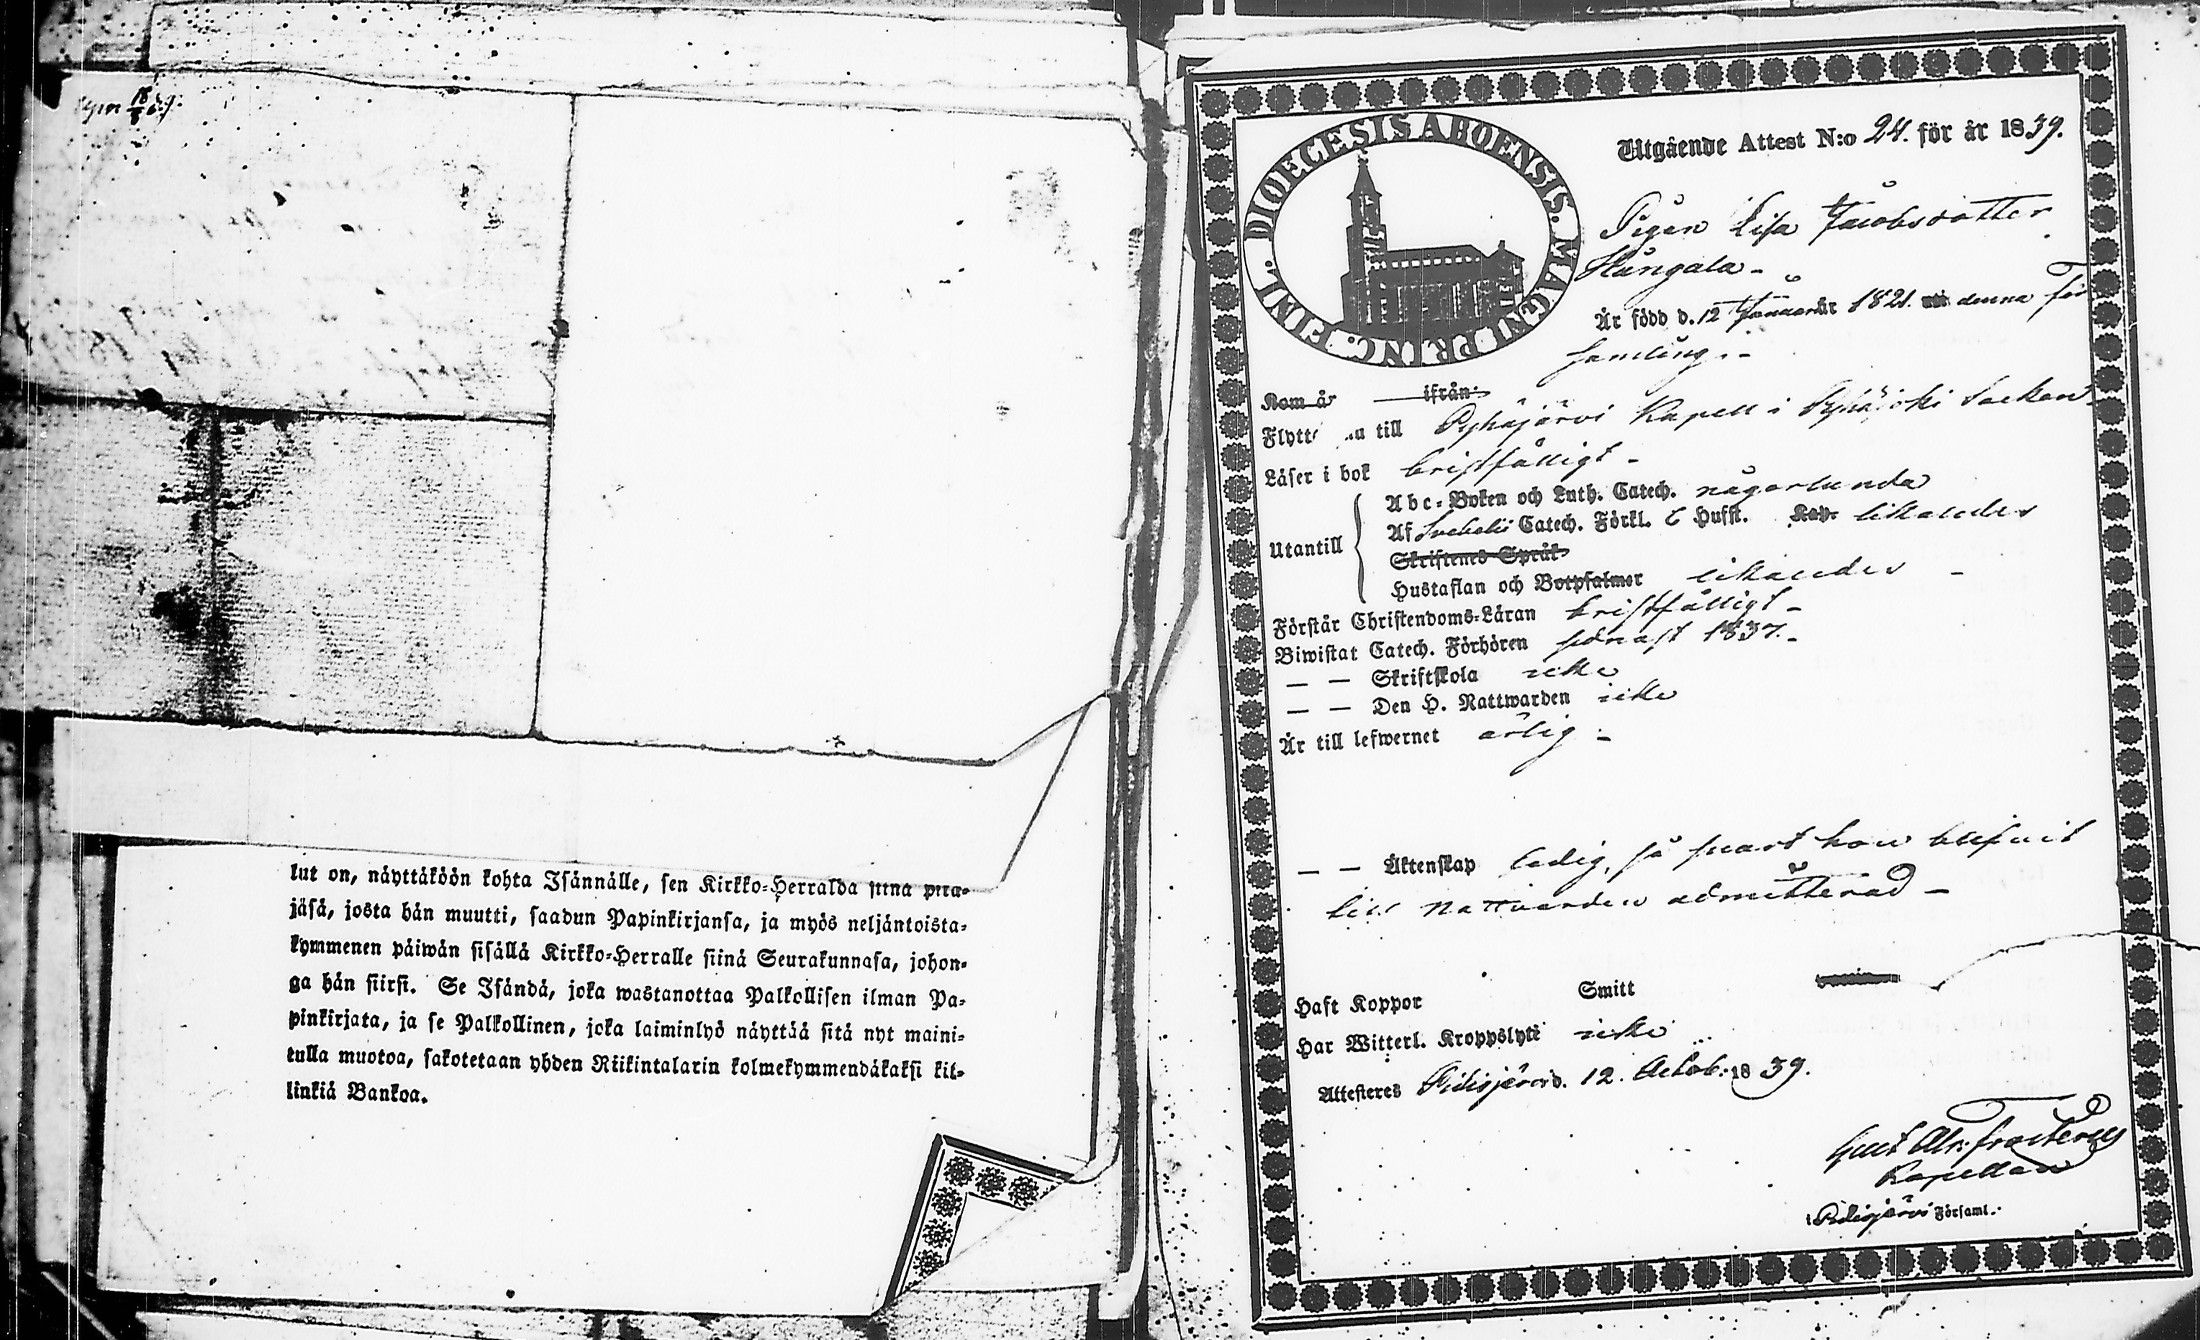 lut on, näyttäköön kohta Isännälle, sen Kirkko-Herralda siinä pitä-
jäsä, josta hän muutti, saadun Papinkirjansa, ja myös neljäntoista-
kymmenen päiwän sisällä Kirkko-Herralle siinä Seurakunnasa, johon-
ga hän siirsi. Se Isändä, joka wastanottaa Palkollisen ilman Pa-
pinkirjata, ja se Palkollinen, joka laiminlyö näyttää sitä nyt maini-
tulla muotoa, sakotetaan yhden Riikintalarin kolmekymmendäkaksi kil-
linkiä Bankoa.
DIOECESIS ABOENSIS. MAGNI PRINC. FINL.
Utgående Attest N:o 24. för år 1839.
Pigan Lisa Jacobsdotter
Hångala -
Är född d. 12 Januar år 1821. denna För
samling. -
Kom år ifrån
Flytt nu till Pyhäjärvi Kapell i Pyhäjoki Socken -
Läser i bok bristfälligt -
Utantill
Abc-Boken och Luth. Catech. någorlunda
Af Svebelii Catech. Förkl. 6 Hufst. Kap. likaledes
Skriftenes Språk
Hustaflan och Botpsalmer likaledes -
Förstår Christendoms-Läran bristfälligt -
Biwistat Catech. Förhören sednast 1837. -
— — Skriftskola icke
— — Den H. Nattwarden icke
Är till lefwernet ärlig -
— — Äktenskap ledig, så snart hon blifvit
till Nattvarden admitterad -
Haft Koppor Smitt
Har Witterl. Kroppslyte icke
Attesteres Pidisjärvi d. 12. Octob. 1839.
Gust Alr. Frosterus
Kapellan
i Pidisjärvi Församl.